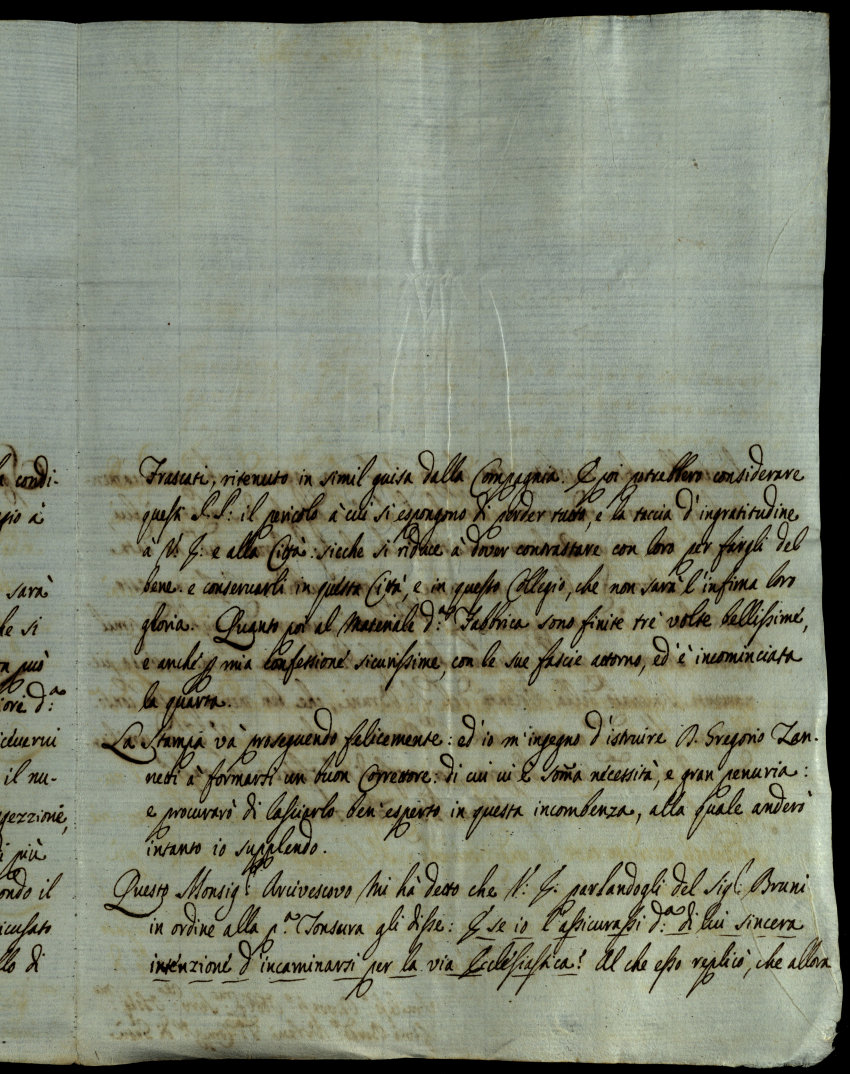 a condi-
gio à
sarà
he si
n può
iore d.ª
iceverui
il nu-
gezzione,
i più
ondo il
icusato
llo di
Frascati, ritenuto in simil guisa dalla Compagnia. E poi potrebbero considerare
questi P.P: il pericolo à cui si espongono di perder tutto, e la taccia d'ingratitudine
à V: J: e alla Città: sicche si riduce à dover contrastare con loro per fargli del
bene. e conservarli in questa Città, e in questo Collegio, che non sarà l'infima loro
gloria. Quanto poi al Materiale d.ª Fabbrica sono finite trè volte bellissime,
e anche p mia confessione sicurissime, con le sue fascie attorno, ed è incominciata
la quarta.
La Stampa và proseguendo felicemente: ed io m'ingegno d'istruire D. Gregorio Zan-
netti à formarsi un buon Correttore: di cui vi è som̃a necessità, e gran penuria:
e procurarò di lasciarlo ben' esperto in questa incombenza, alla quale anderò
intanto io supplendo.
Questo Monsig.r Arcivescovo mi hà detto che V: J: parlandogli del Sig.r Bruni
in ordine alla p.ª Tonsura gli disse: E se io l'assicurassi d.ª di lui sincera
intenzione d'incaminarsi per la via Ecclesiastica? Al che esso replicò, che allora